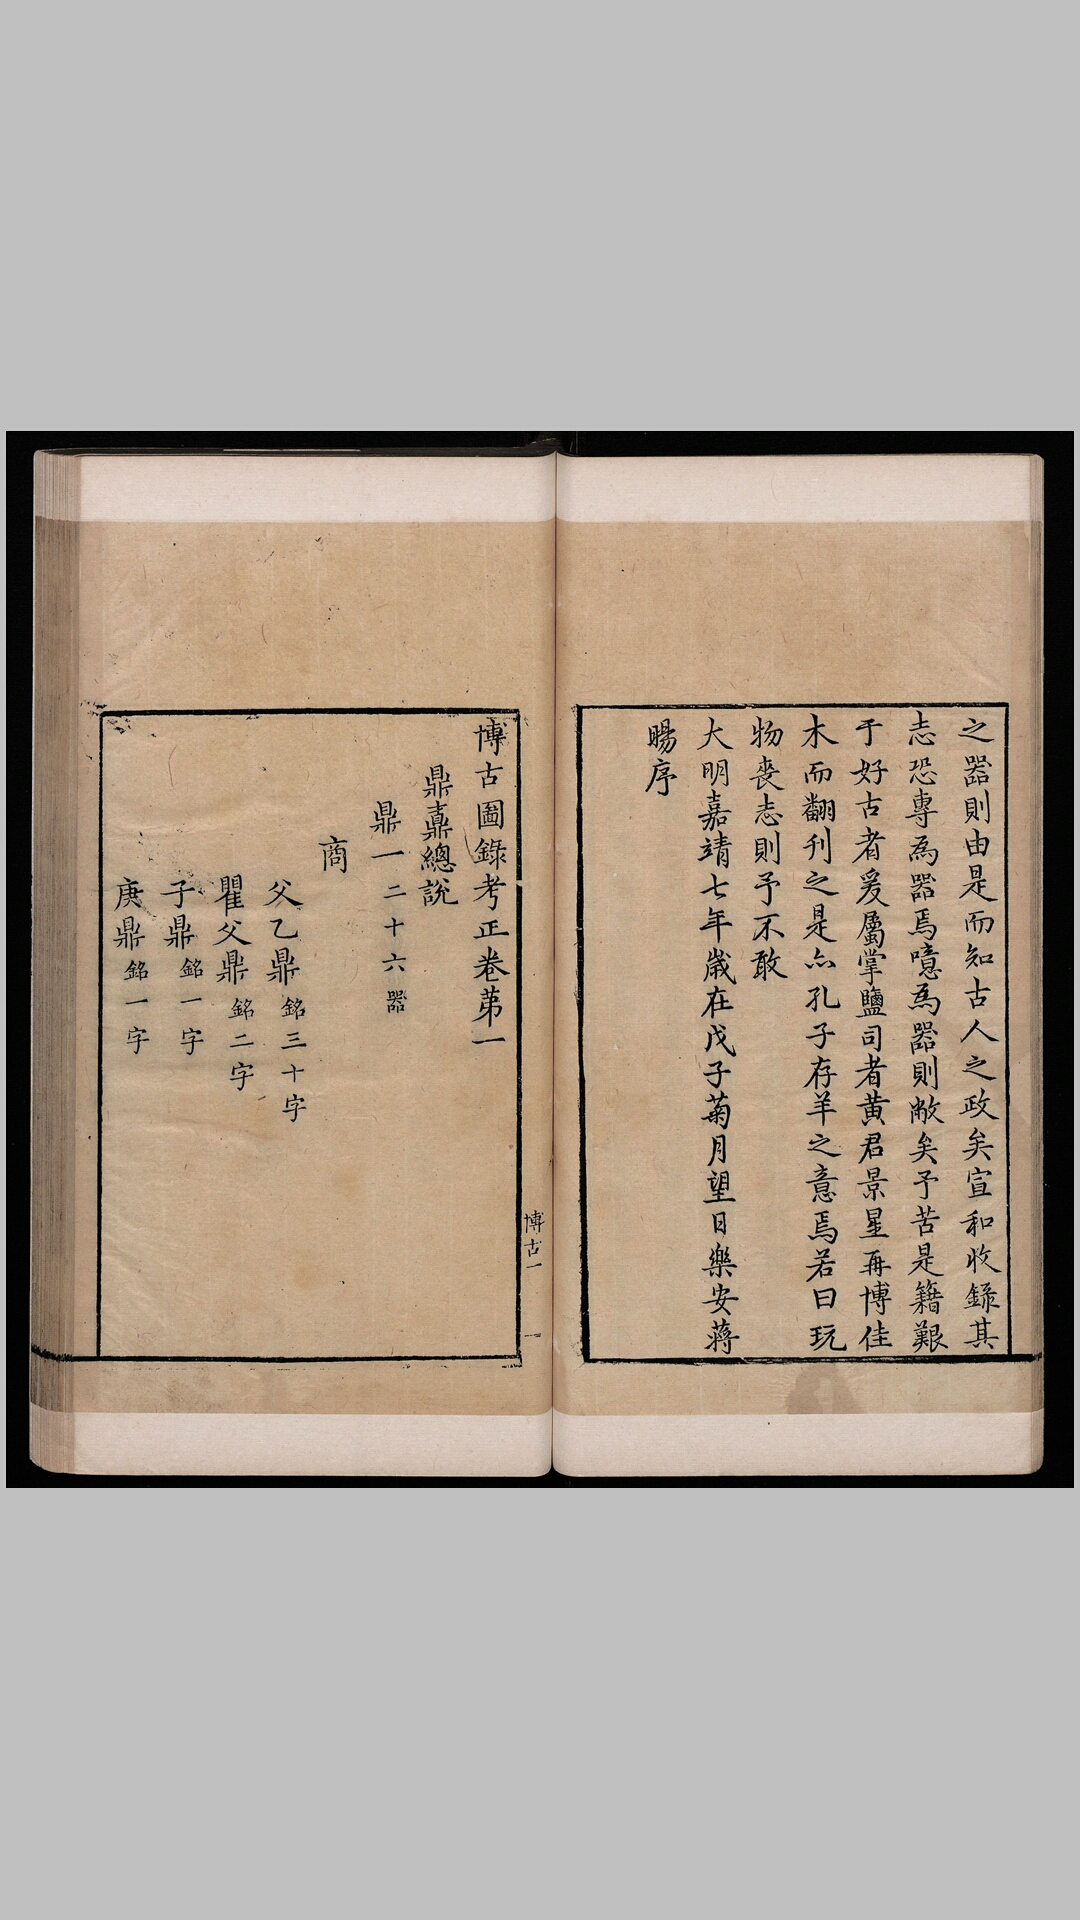 之器則由是而知古人之政矣宣和收錄其
志恐專為器焉噫為器則敝矣予苦是籍艱
于好古者爰屬掌鹽司者黃君景星再博佳
木而翻刊之是亦孔子存羊之意焉若曰玩
物喪志則予不敢
大明嘉靖七年歲在戊子菊月望日樂安蔣
暘序
博古圖錄考正卷第一
鼎鼒總說
鼎一二十六器
商
父乙鼎銘三十字
瞿父鼎銘二字
子鼎銘一字
庚鼎銘一字
博古一
一